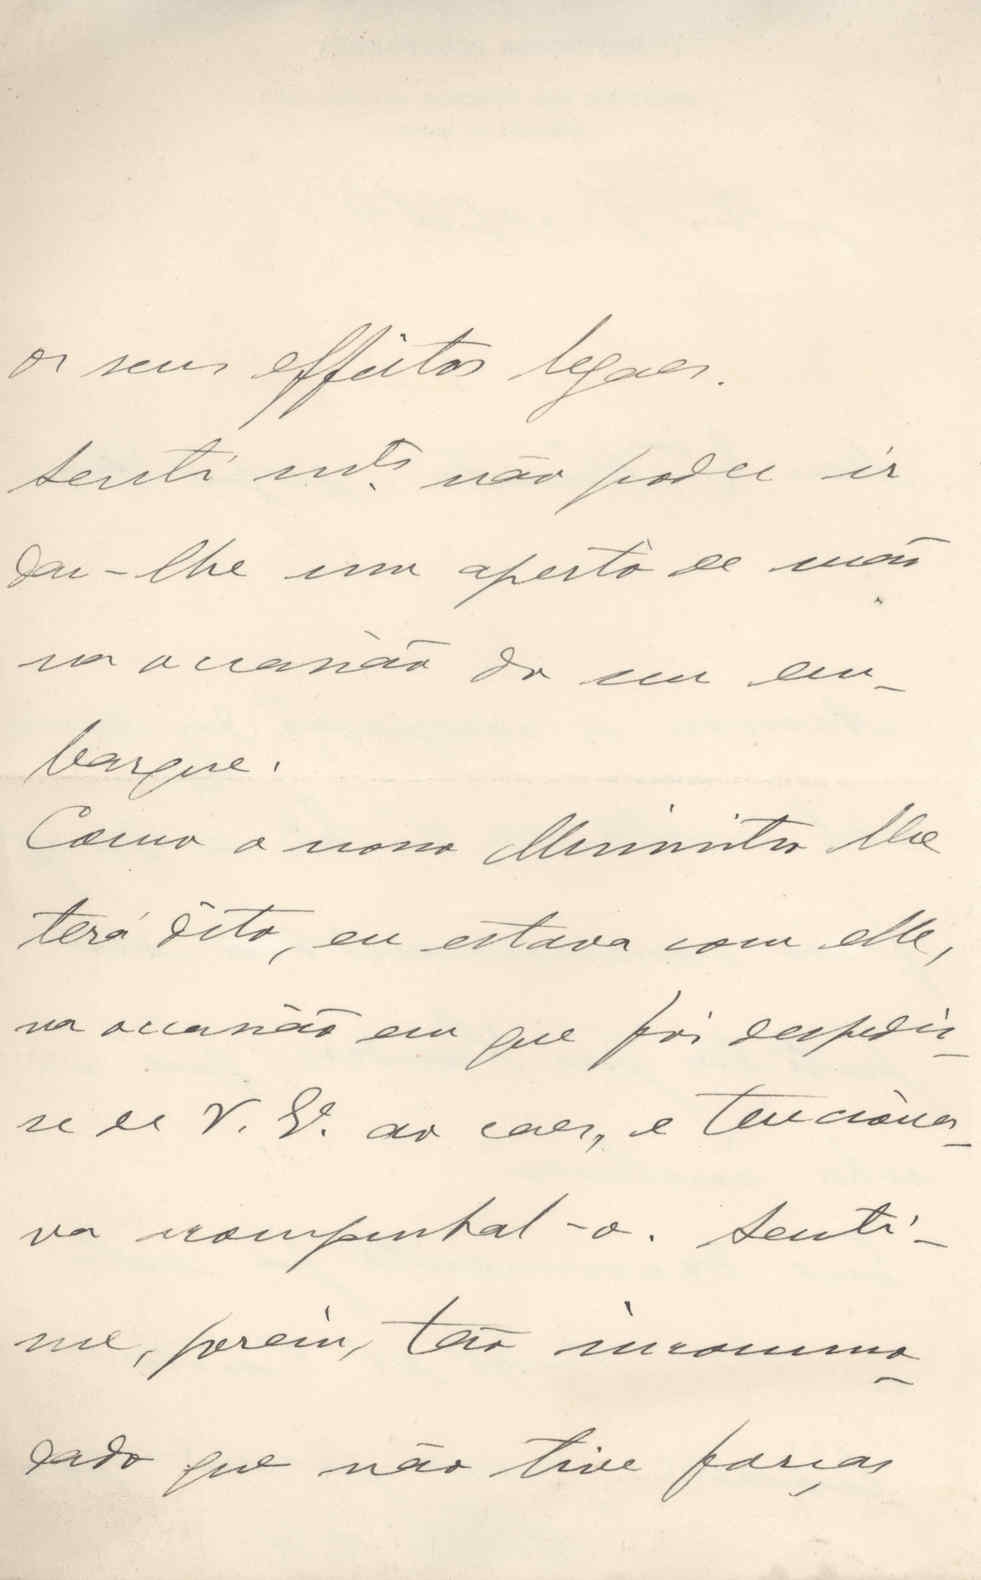 os seus effeitos legaes.
Senti mtº não poder ir
dar-lhe um aperto de mão
na occasião do seu em-
barque.
Como o nosso Ministro lhe
terá dito, eu estava com elle,
na occasião em que foi despedir-
se de V. Eª. ao caes, e tenciona-
va acompanhal-o. Senti-
me, porém, tão incommo-
dado que não tive forças